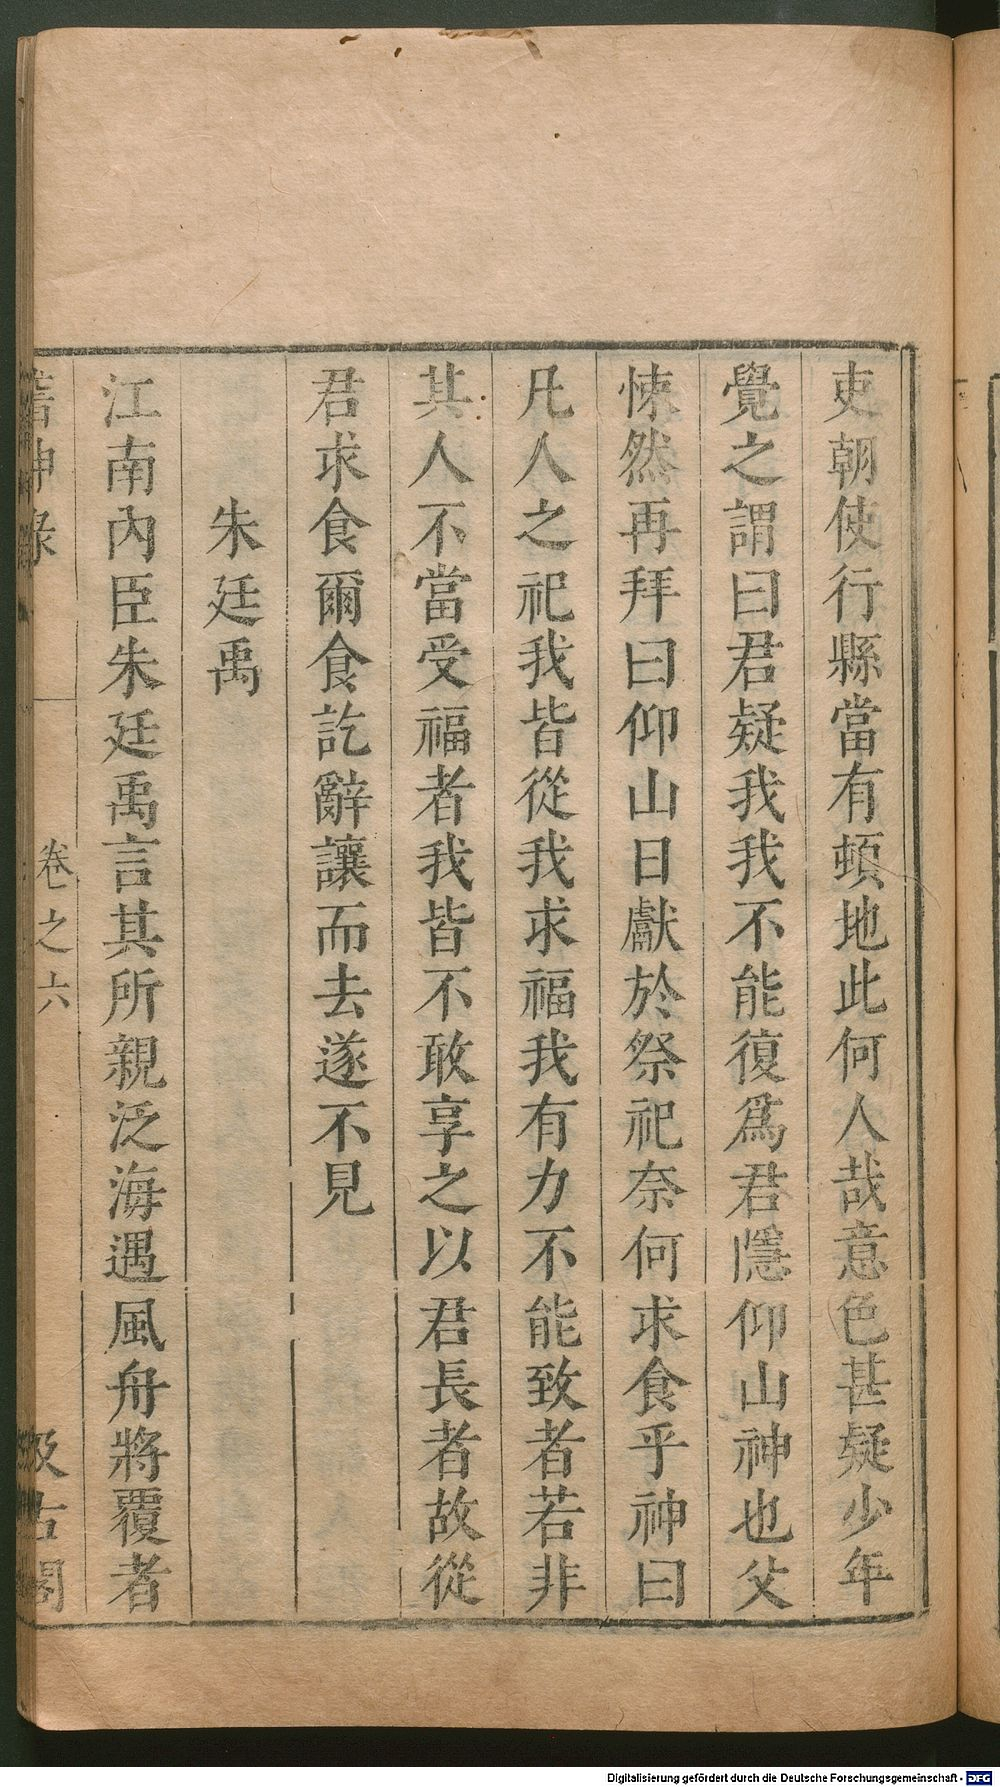 吏朝使行縣當有頓地此何人哉意色甚疑少年
覺之謂曰君疑我我不能復爲君隱仰山神也父
悚然再拜曰仰山日獻於祭祀奈何求食乎神曰
凡人之祀我皆從我求福我有力不能致者若非
其人不當受福者我皆不敢享之以君長者故從
君求食爾食訖辭讓而去遂不見
朱廷禹
江南內臣朱廷禹言其所親泛海遇風舟將覆者
神錄
卷之六
汲古閣
Digitalisierung gefördert durch die Deutsche Forschungsgemeinschaft - DFG